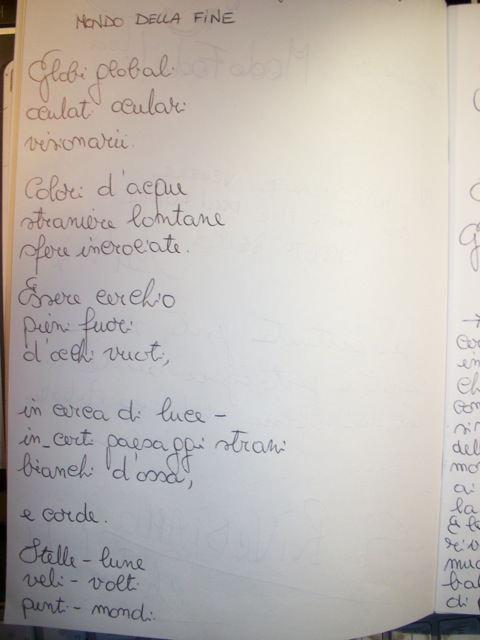 MONDO DELLA FINE
Globi globali
oculati oculari
visionarii.
Colori d'acque
straniere lontane
sfere incrociate.
Essere cerchio
pieni fuori
d'occhi vuoti,
in cerca di luce –
in_certi paesaggi strani
bianchi d'ossa,
e corde.
Stelle - lune
veli - volti
punti - mondi.